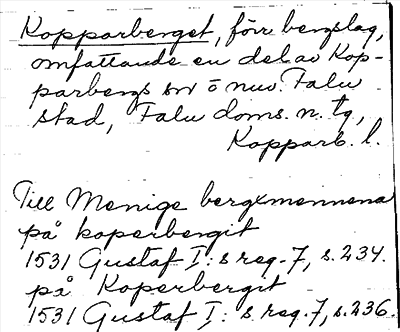 Kopparberget, förr bergslag,
omfattande en del av Kop-
parbergs sn o nuv. Falu
stad, Falu doms. n. tg,
Kopparb. l.
Till Menige bergxmennena
på koperbergit
1531 Gustaf I: s reg. 7, s. 234.
på Koperbergit
1531 Gustaf I: s. reg. 7, s. 236.